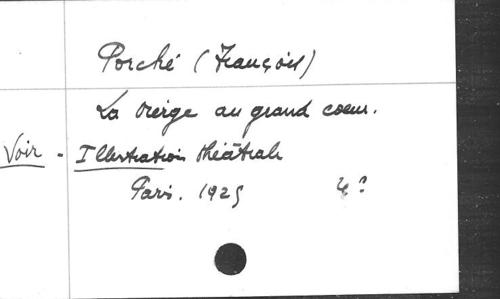 Porché (François)
La Vierge au grand coeur.
Voir - Illustration théâtrale
Paris. 1925 4º